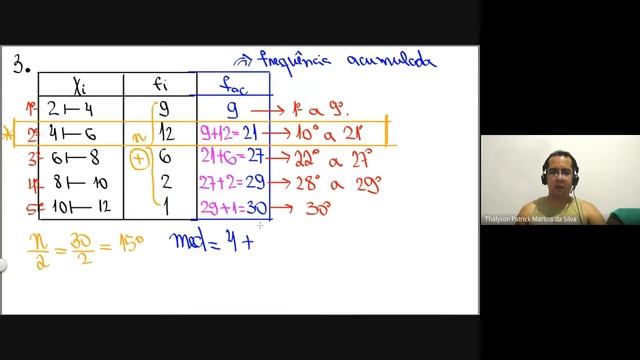 3. ⇒ frequência acumulada
Xi fi fac.
1ª 2 ⊢ 4 9 9 → 1º a 9º.
* 2ª 4 ⊢ 6 12 9+12=21 → 10º a 21º
3ª 6 ⊢ 8 6 21+6=27 → 22º a 27º
4ª 8 ⊢ 10 2 27+2=29 → 28º a 29º
5ª 10 ⊢ 12 1 29+1=30 → 30º
n +
n/2 = 30/2 = 15º med = 4 +
Thalyson Patrick Martins da Silva